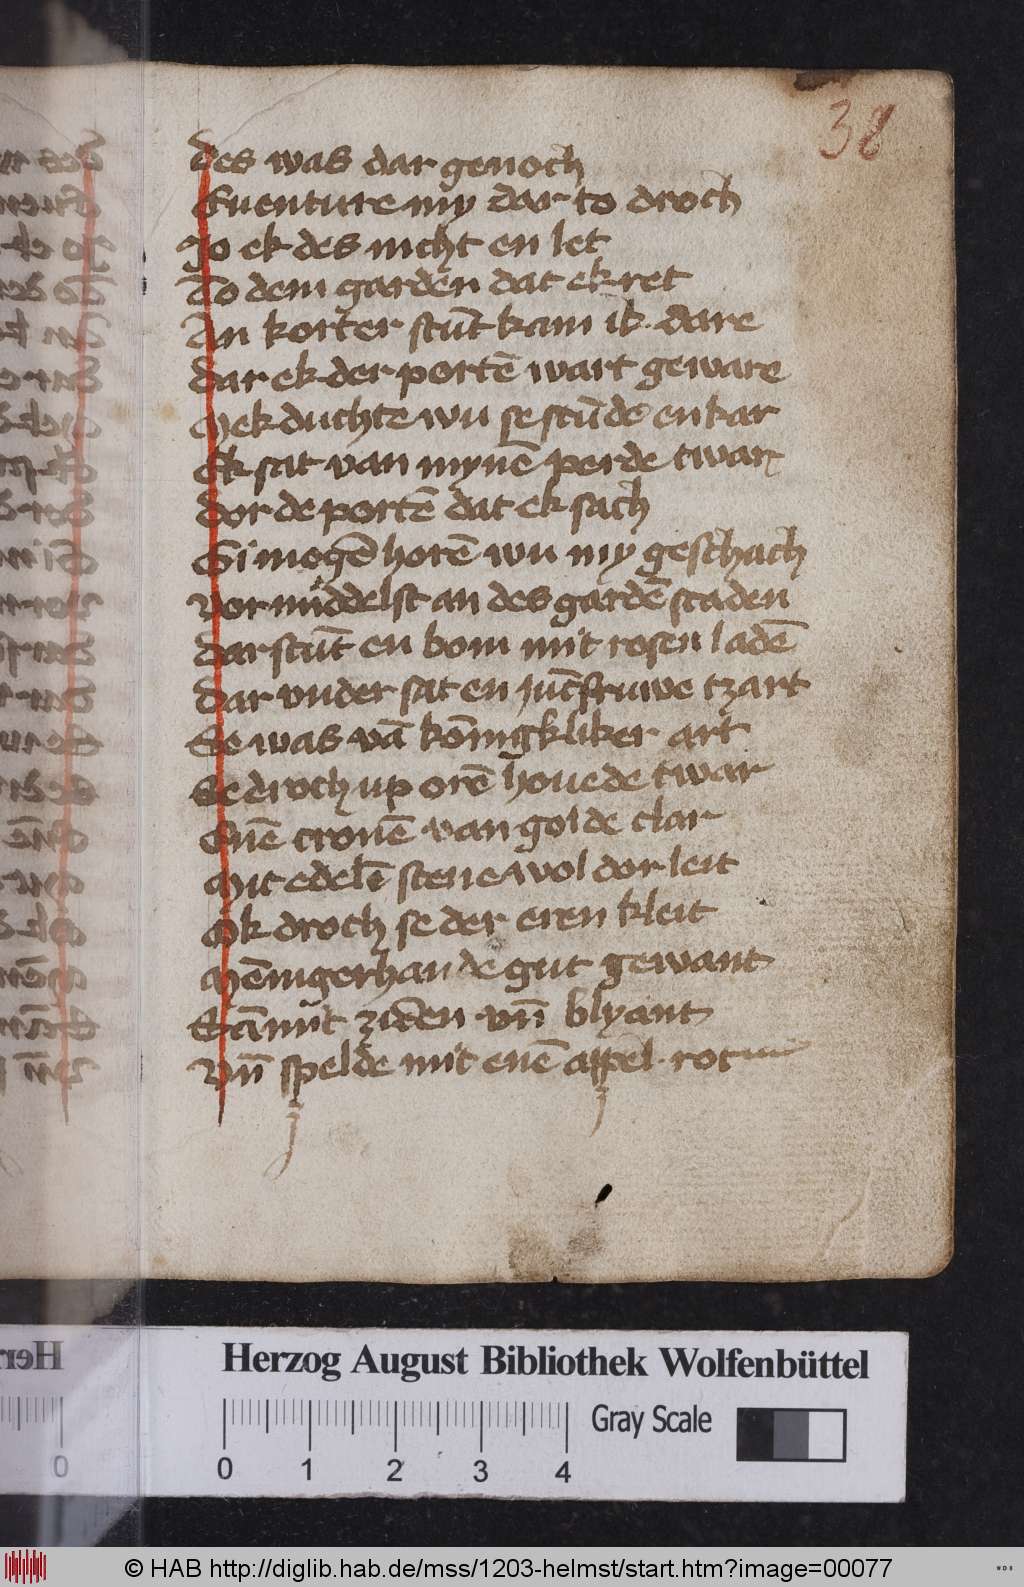 38
des was dar genoch
Euenture my dar to droch
Jo ek des nicht en let
To dem gardēn dat ek ret
In korter stūt kam ik dare
dar ek der portē wart geware
Mek duchte wu se stūde enbar
Ek sat van mynē perde twar
dor de portē dat ek sach
Gi mogē horē wu my geschach
vor middelst an des gardē staden
dar stūt en bom mit rosen ladē
dar vnder sat en jūcfruwe tzart
Se was vā kōnigkliker art
Se droch up orē houede twar
Enē cronē van golde clar
Mit edelē stene wol dor leit
Ok droch se der eren kleit
Mēnigerhande gut gewant
Sāmit ziden vn̄ blyant
vn̄ spelde mit enē appel rot
Herzog August Bibliothek Wolfenbüttel
Gray Scale
0 1 2 3 4
© HAB http://diglib.hab.de/mss/1203-helmst/start.htm?image=00077